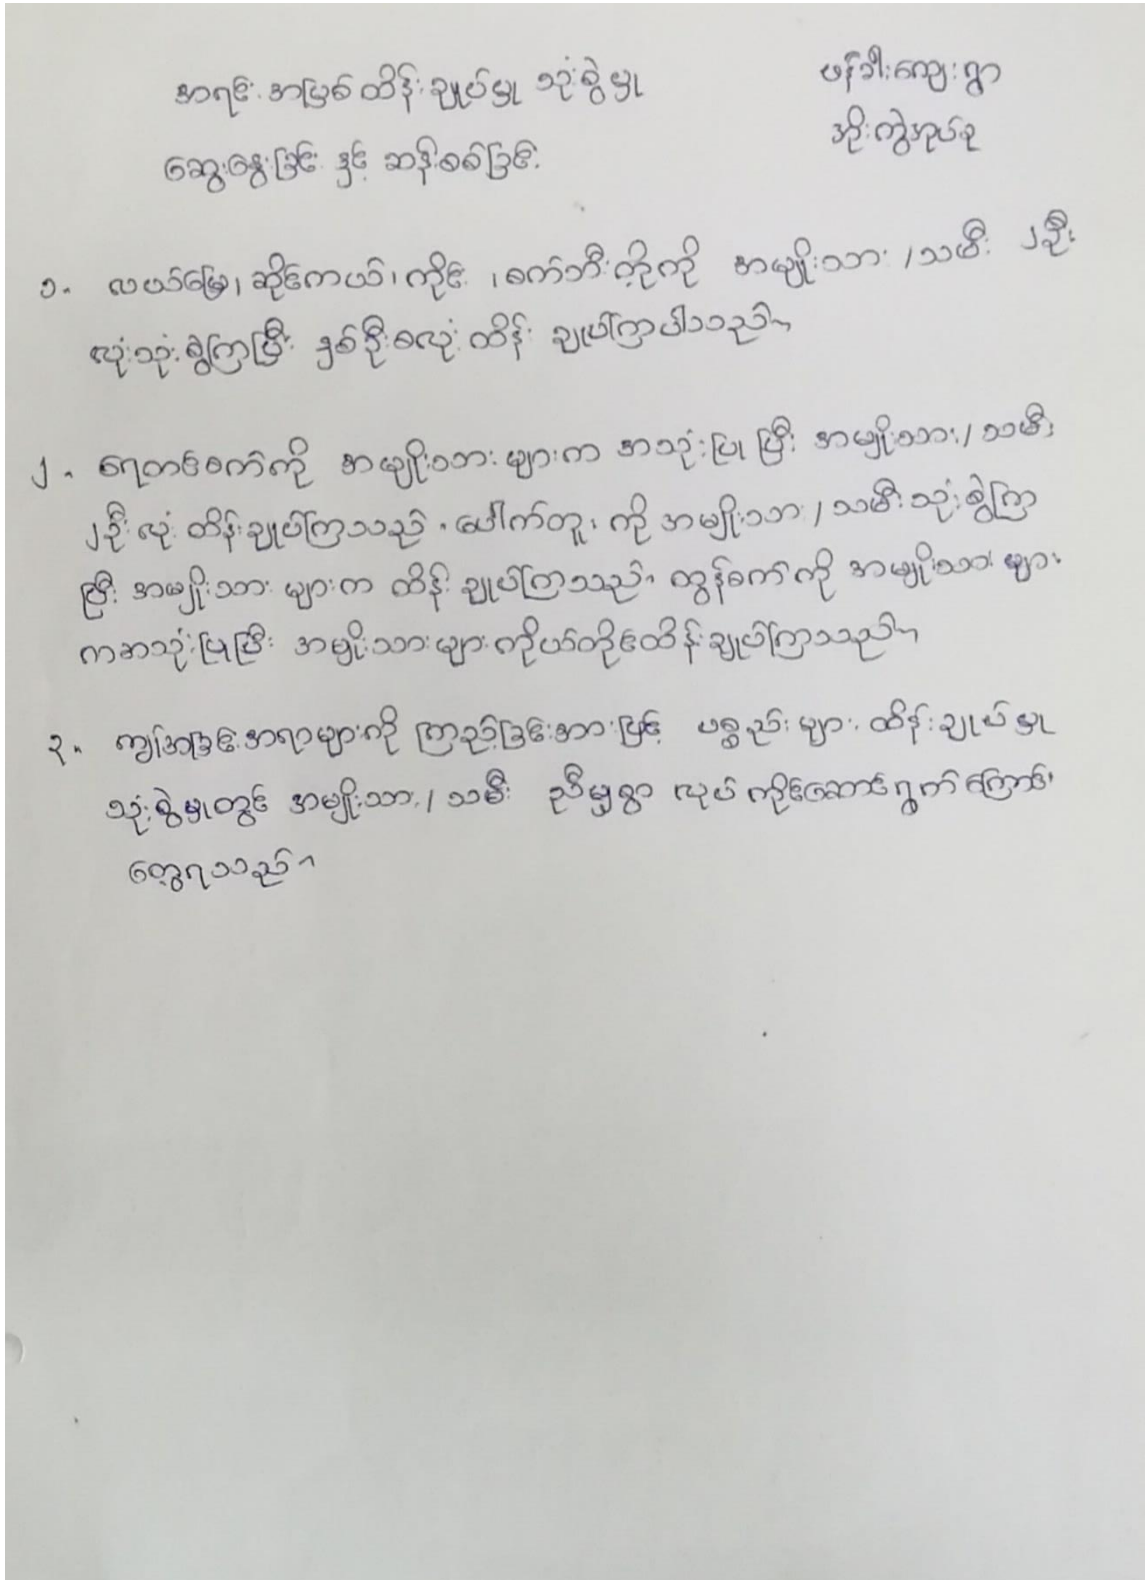 အရင်းအမြစ်ထိန်းချုပ်မှု သုံးစွဲမှု
ဖန်ခါးကျေးရွာ
ဆွေးနွေးခြင်း နှင့် ဆန်းစစ်ခြင်း
အိုးကွဲအုပ်စု
၁. လယ်မြေ၊ ဆိုင်ကယ်၊ ကိုင်း ၊ စက်ဘီးတို့ကို အမျိုးသား / သမီး ၂ဦး
လုံးသုံးစွဲကြပြီး နှစ်ဦးစလုံးထိန်း ချုပ်ကြပါသည်။
၂. ရေတင်စက်ကို အမျိုးသားများက အသုံးပြုပြီး အမျိုးသား / သမီး
၂ဦးလုံး ထိန်းချုပ်ကြသည်၊ ပေါက်တူး ကို အမျိုးသား / သမီးသုံးစွဲကြ
ပြီး အမျိုးသား များက ထိန်းချုပ်ကြသည်၊ ထွန်စက်ကို အမျိုးသားများ
ကအသုံးပြုပြီး အမျိုးသားများကိုယ်တိုင်ထိန်းချုပ်ကြသည်။
၃. ကျွန်အခြင်းအရာများကို ကြည့်ခြင်းအားဖြင့် ပစ္စည်းများ ထိန်းချုပ်မှု
သုံးစွဲမှုတွင် အမျိုးသား / သမီး ညီမျှစွာ လုပ်ကိုင်ဆောင်ရွက်ကြောင်း
တွေ့ရသည်။